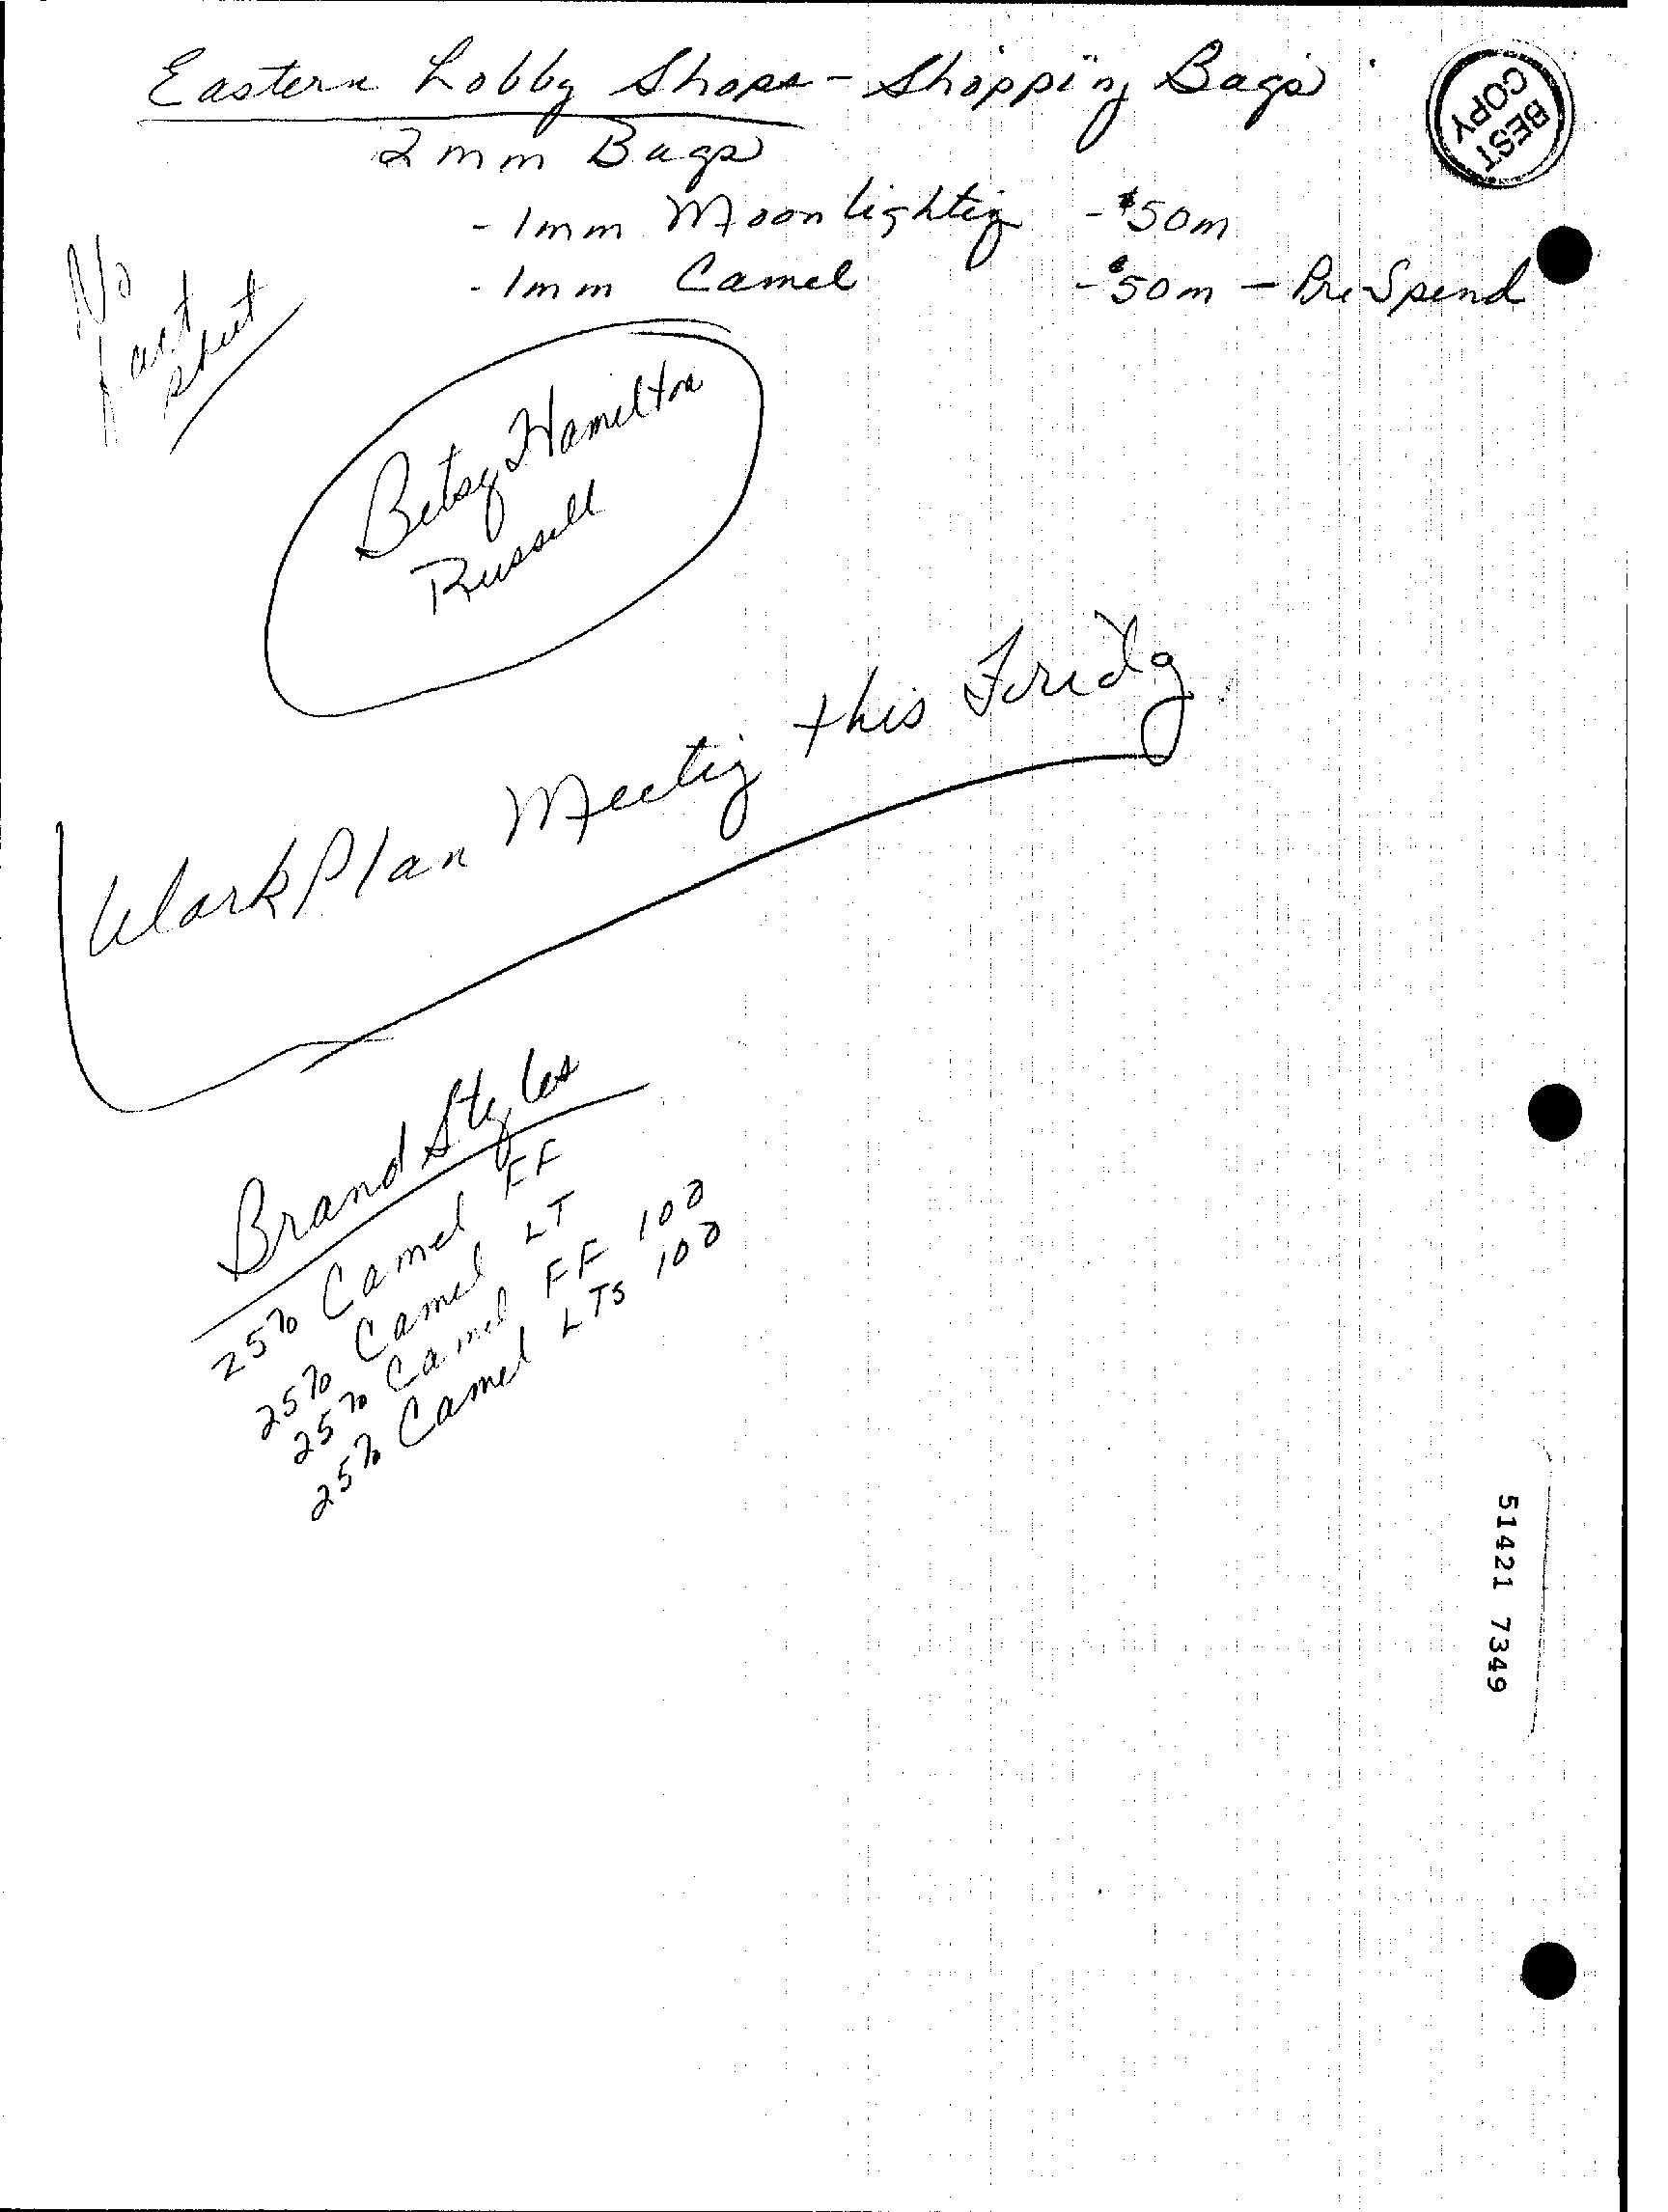 Eastern Lobby Shops - Shopping Bags
BEST
COPY
2mm Bags
- 1mm Moonlightig - $50m
- 1mm Camel - $50m - Pre-Spend
No
fact
sheet
Betsy Hamilton
Russell
Work Plan Meetig this Friday
Brand Styles
25% Camel FF
25% Camel LT
25% Camel FF 100
25% Camel LTS 100
51421 7349